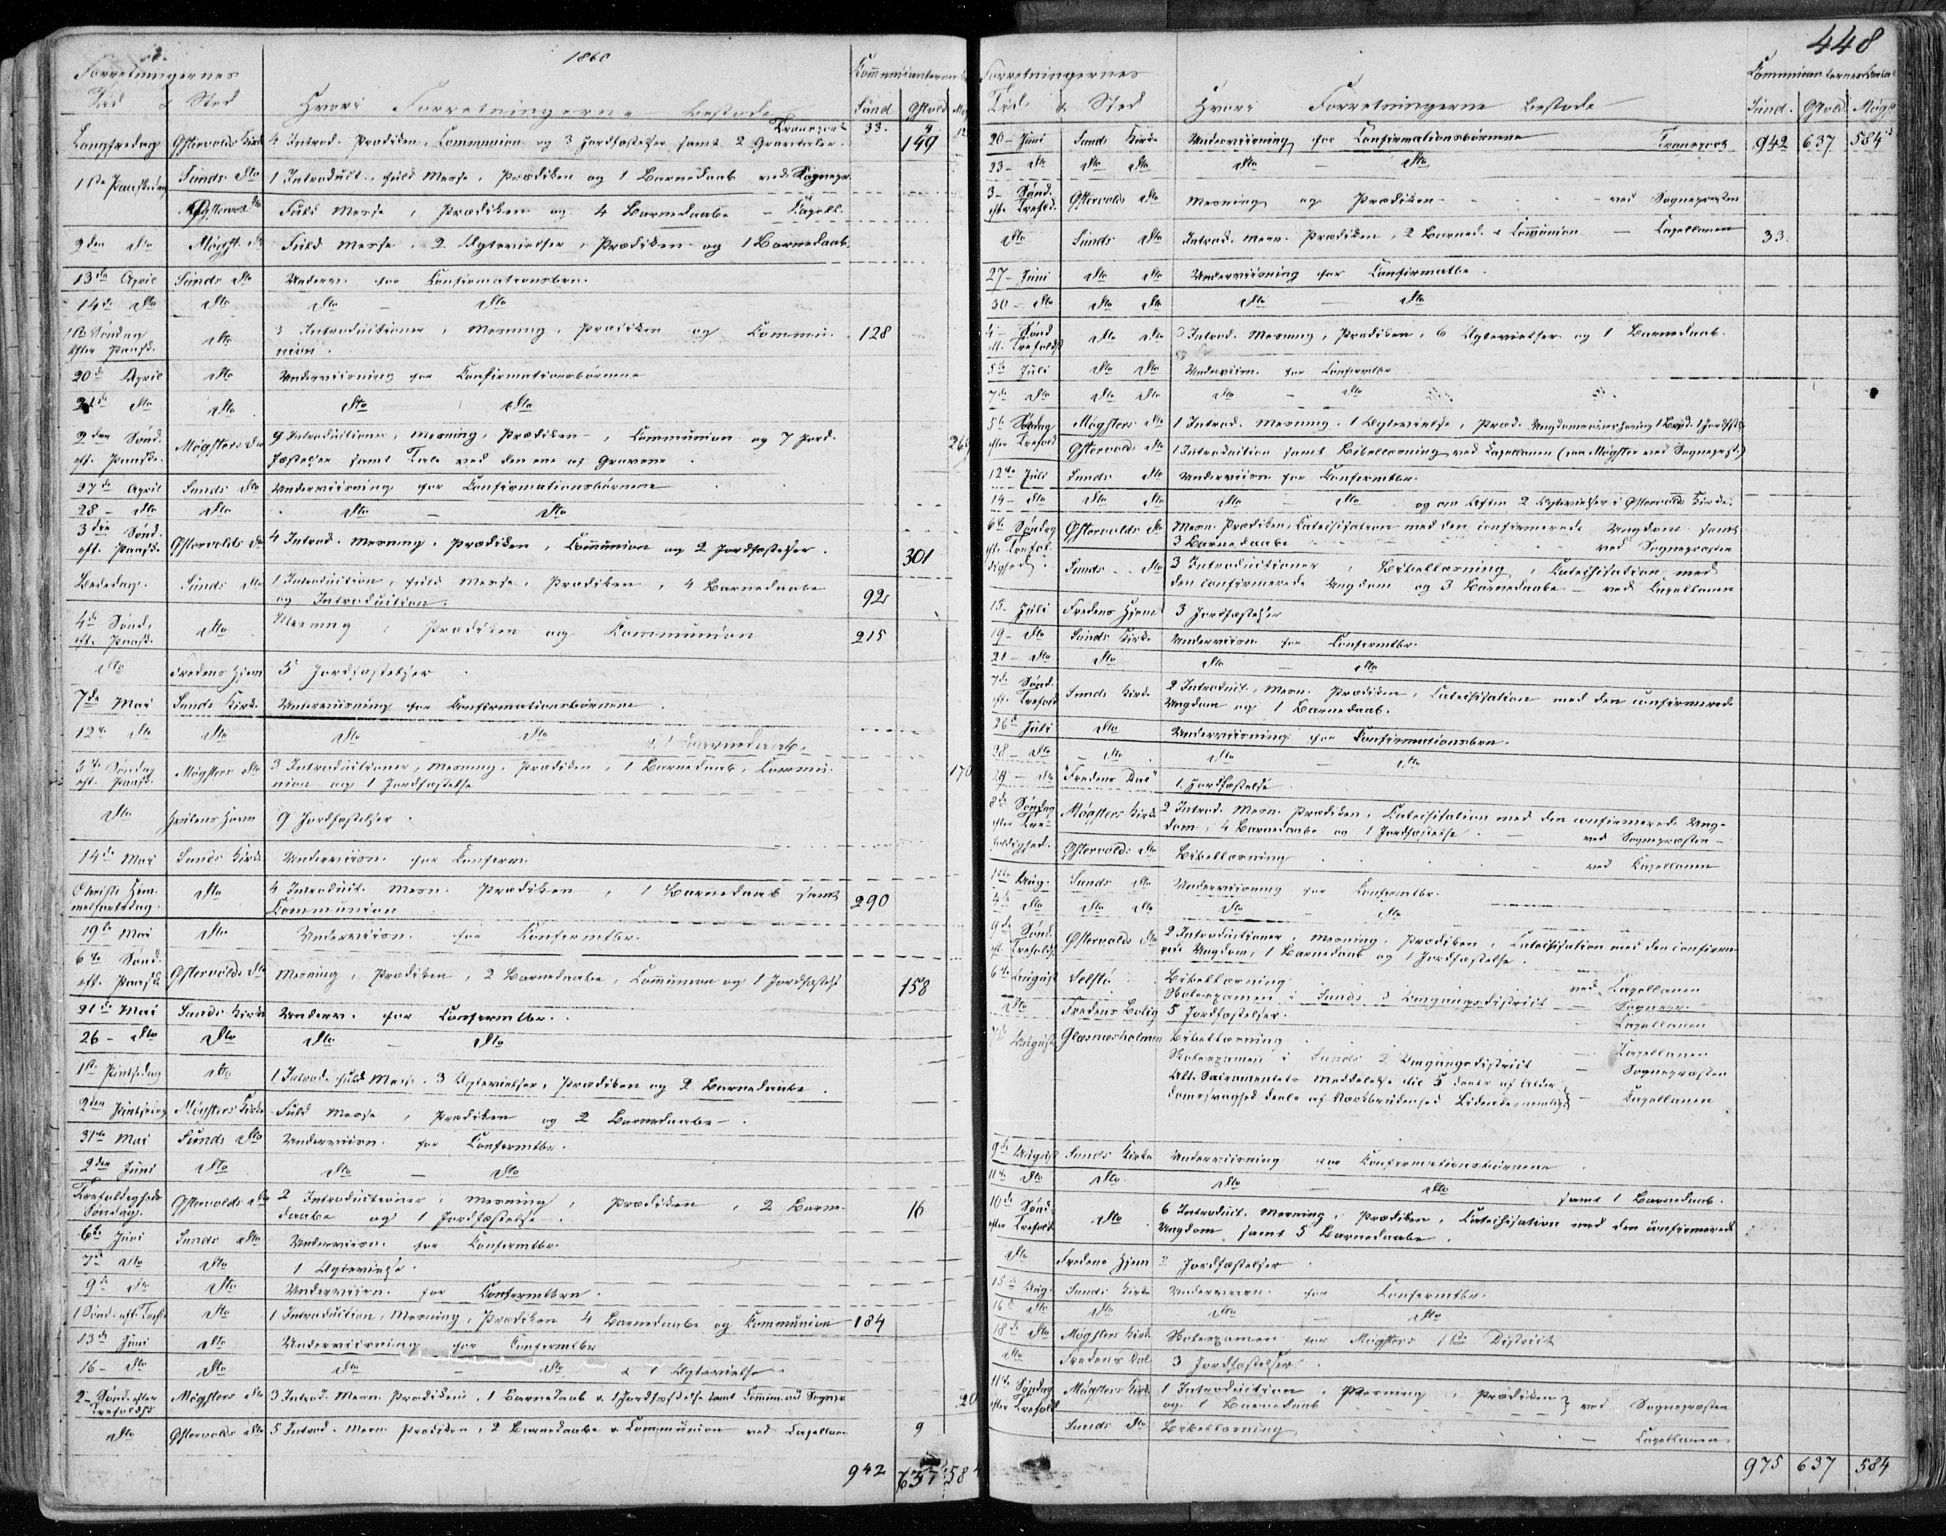 1860
Forretningernes
Tid & Sted
Hvori Forretningerne bestode
Communicanternes
Sund. Østvold. Møg
Transport 33. 4
Langfredag Østervolds Kirke 4 Introd. Prædiken, Communion og 3 Jordfæstelser samt 2 149
1ste Paaskedag Sunds dto 1 Introduct. fuld Messe, Prædiken og 1 Barnedaab ved Sognepr.
Østervolds dto Fuld Messe, Prædiken og 4 Barnedaabe - Capell.
2den dto Møgst. dto Fuld Messe, 2 Ægtevielser, Prædiken og 1 Barnedaab
13de April Sunds dto Underv. for Confirmationsbrn.
14de dto dto dto - dto
1ste Søndag efter Paask. dto 3 Introductioner, Mesning, Prædiken og Commu- 128
nion.
20de April dto Underviisning for Confirmationsbørnene
21de dto dto dto dto
2den Sønd. eft. Paaske. Møgsters dto 9 Introductioner, Mesning, Prædiken, Communion og 7 Jord-
fæstelser samt Tale ved den ene af Gravene.
27de April Sunds dto Underviisning for Confirmationsbørnene
28 - dto dto dto - dto
3die Sønd. eft. Paaske Østervolds dto 4 Introd. Mesning, Prædiken, Communion og 2 Jordfæstelser. 301
Bededag. Sunds dto 1 Introduction, fuld Messe, Prædiken, 4 Barnedaabe 92
og Introduction.
4de Sønd. eft. Paask. dto Mesning, Prædiken og Communion 215
dto Fredens Hjem 5 Jordfæstelser.
7de Mai Sunds Kirke Underviisning for Confirmationsbørnene.
12te dto dto dto - dto
& 1 Barnedaab.
5te Søndag eft. Paask. Møgsters dto 3 Introductioner, Mesning, Prædiken, 1 Barnedaab, Commu- 170
nion og 1 Jordfæstelse
dto Hvilens Hjem 9 Jordfæstelser.
14de Mai Sunds Kirke Underviisn. for Confirm.
Christi Him-
melfartsdag. dto 4 Introduct. Mesn. Prædiken, 1 Barnedaab samt 290
Communion
19de Mai dto Underviisn. for Confirmtbr.
6te Sønd. eft. Paaske Østervolds dto Mesning, Prædiken, 2 Barnedaabe, Communion og 1 Jordfæstelse 158
21de Mai Sunds Kirke Underv. for Confirmtbr.
26 - dto dto dto - dto
1ste Pintsedag dto 1 Introd. fuld Messe, 3 Ægtevielser, Prædiken og 2 Barnedaabe.
2den Pintsedag Møgsters Kirke Fuld Messe, Prædiken og 2 Barnedaabe.
31te Mai Sunds dto Underviisn. for Confirmtbr.
2den Juni dto dto - dto
Trefoldigheds
Søndag. Østervolds dto 2 Introductioner, Mesning, Prædiken, 2 Barne- 16
daabe og 1 Jordfæstelse.
6te Juni Sunds dto Underviisn. for Confirmtbr.
7de dto dto 1 Ægtevielse.
9de dto dto Underviisn. for Confirmtbrn.
1 Sønd. eft. Trefs. dto 1 Introduction, Mesning, Prædiken 4 Barnedaabe og Communion 184
13de Juni dto Underviisning for Confirmtbr
16 - dto dto dto - dto & 1 Ægtevielse.
2 - Sønd. efter Trefoldhd Møgsters dto 3 Introd. Mesn. Prædiken, 1 Barnedaab & 1 Jordfæstelse samt Commun. ved Sognepr. 20
dto Østervolds dto 5 Introd. Mesn. Prædiken, 2 Barnedaabe & Communion ved Capellan 9
942 637 584

448
Forretningernes
Tid & Sted
Hvori Forretningerne bestode
Communicanternes
Sund. Østvold. Møgst.
20 - Juni Sunds Kirke Underviisning for Confirmationsbørnene Transport 942 637 584
23 - dto dto dto dto - dto
3 - Sønd. efter Trefold. Østervolds dto Mesning og Prædiken - ved Sognepresten
dto Sunds dto Introd. Mesn. Prædiken, 2 Barned. & Communion - Capellanen 33.
27 - Juni dto dto Underviisning for Confirmatbr.
30 - dto dto dto dto - dto
4 - Sønd. eft. Trefoldhd dto dto 3 Introd. Mesning, Prædiken, 6 Ægtevielser og 1 Barnedaab.
5te Juli dto dto Underviisn. for Confirmtbr.
7de dto dto dto dto - dto
5te Søndag efter Trefold. Møgsters dto 1 Introd. Mesning, 1 Ægtevielse, Præd. 1 Jordfst.
Østervolds dto 1 Introduction samt Bibellæsning ved Capellanen (paa Møgster ved Sognepræst.)
12te Juli Sunds dto Underviisn. for Confirmtbr.
14 - dto dto dto dto - dto og om Aften 2 Ægtevielser i Østervold Kirke.
6te Søndag eft. Trefol-
dighed. Østervolds dto Mesn. Prædiken, Catechisation med den confirmerede Ungdom samt
3 Barnedaabe ved Sognepræsten
Sunds dto 3 Introductioner, Bibellæsning, Catechisation med
den confirmerede Ungdom og 3 Barnedaabe - ved Capellanen
15. Juli Fredens Hjem 3 Jordfæstelser
19 - dto Sunds Kirke Underviisn. for Confirmtbr.
21 - dto dto dto - dto
7de Sønd. eft. Trefold Sunds Kirke 2 Introduct., Mesn. Prædiken, Catechisation med den confirmerede
Ungdom og 1 Barnedaab.
26de Juli dto Underviisning for Confirmationsbrn.
28 - dto dto dto - dto
29 - dto "Fredens Dal" 1 Jordfæstelse.
8de Søndag efter Tre-
foldighed. Møgsters Kirke 2 Introd. Mesn. Prædiken, Catechisation med den confirmerede Ung-
dom, 4 Barnedaabe og 1 Jordfæstelse. - ved Sognepræsten -
Østervolds dto Bibellæsning ved Capellanen
1ste Aug. Sunds dto Underviisning for Confirmtbr.
4de dto dto dto dto - dto
9de Sønd. eft. Trefoldh. Østervolds dto 2 Introductioner, Mesning, Prædiken, Catechisation med den confirme-
rede Ungdom, 1 Barnedaab og 1 Jordfæstelse.
6te August Selbø Bibellæsning ved Capellanen
Skoleexamen i Sunds 3 Omgangsdistrict Sognepr.
dto Fredens Bolig 5 Jordfæstelser. Capellanen
7de August Glæsnæsholmen Bibellæsning - Capellanen
Skoleexamen i Sunds 2 Omgangsdistrict - Sognepræsten
Alt. Sacramentets Meddelelse til 5 deels af Alder-
domssvaghed deels af Lidende - Capellanen
9de August Sunds Kirke Underviisning for Confirmationsbørnene
11te dto dto dto - dto samt 1 Barnedaab.
10de Sønd. efter Trefold. dto 6 Introduct. Mesning, Prædiken, Catechisation med den confirmerede
Ungdom, samt 5 Barnedaabe.
dto Fredens Hjem 3 Jordfæstelser.
15de Aug. Sunds Kirke Underviisn. for Confirmtbr.
16de dto dto dto - dto
18de dto Møgsters Kirke Skoleexamen for Møgsters 1ste District
dto Fredens Dal 3 Jordfæstelser.
11te Søndag efter Trefold Møgsters Kirke 1 Introduction, Mesning, Prædiken
og 1 Barnedaab } ved Sognepræsten
Sunds dto Bibellæsning - Capellanen.
975 637 584